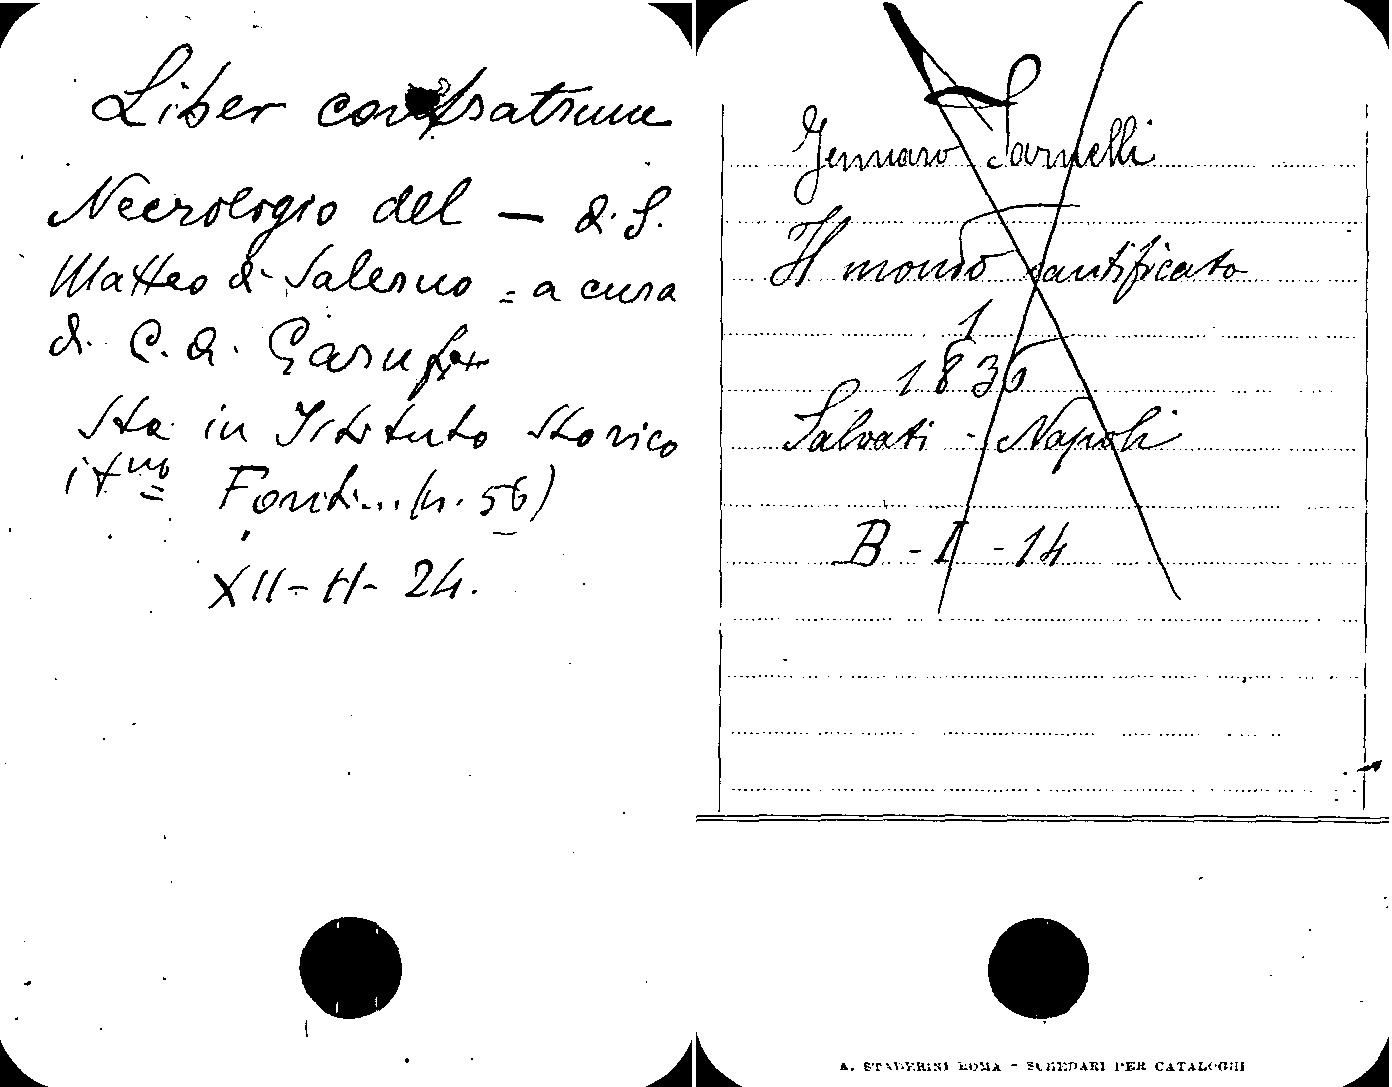 Liber confratrum
Necrologio del — di S.
Matteo di Salerno = a cura
di C. A. Garufi
Sta in Istituto Storico
it.no Fonti... (n. 56)
XII - II - 24.
Gennaro Sarnelli
Il mondo santificato
1
1836
Salvati - Napoli
B - I - 14
A. STADERINI ROMA - SCHEDARI PER CATALOGHI